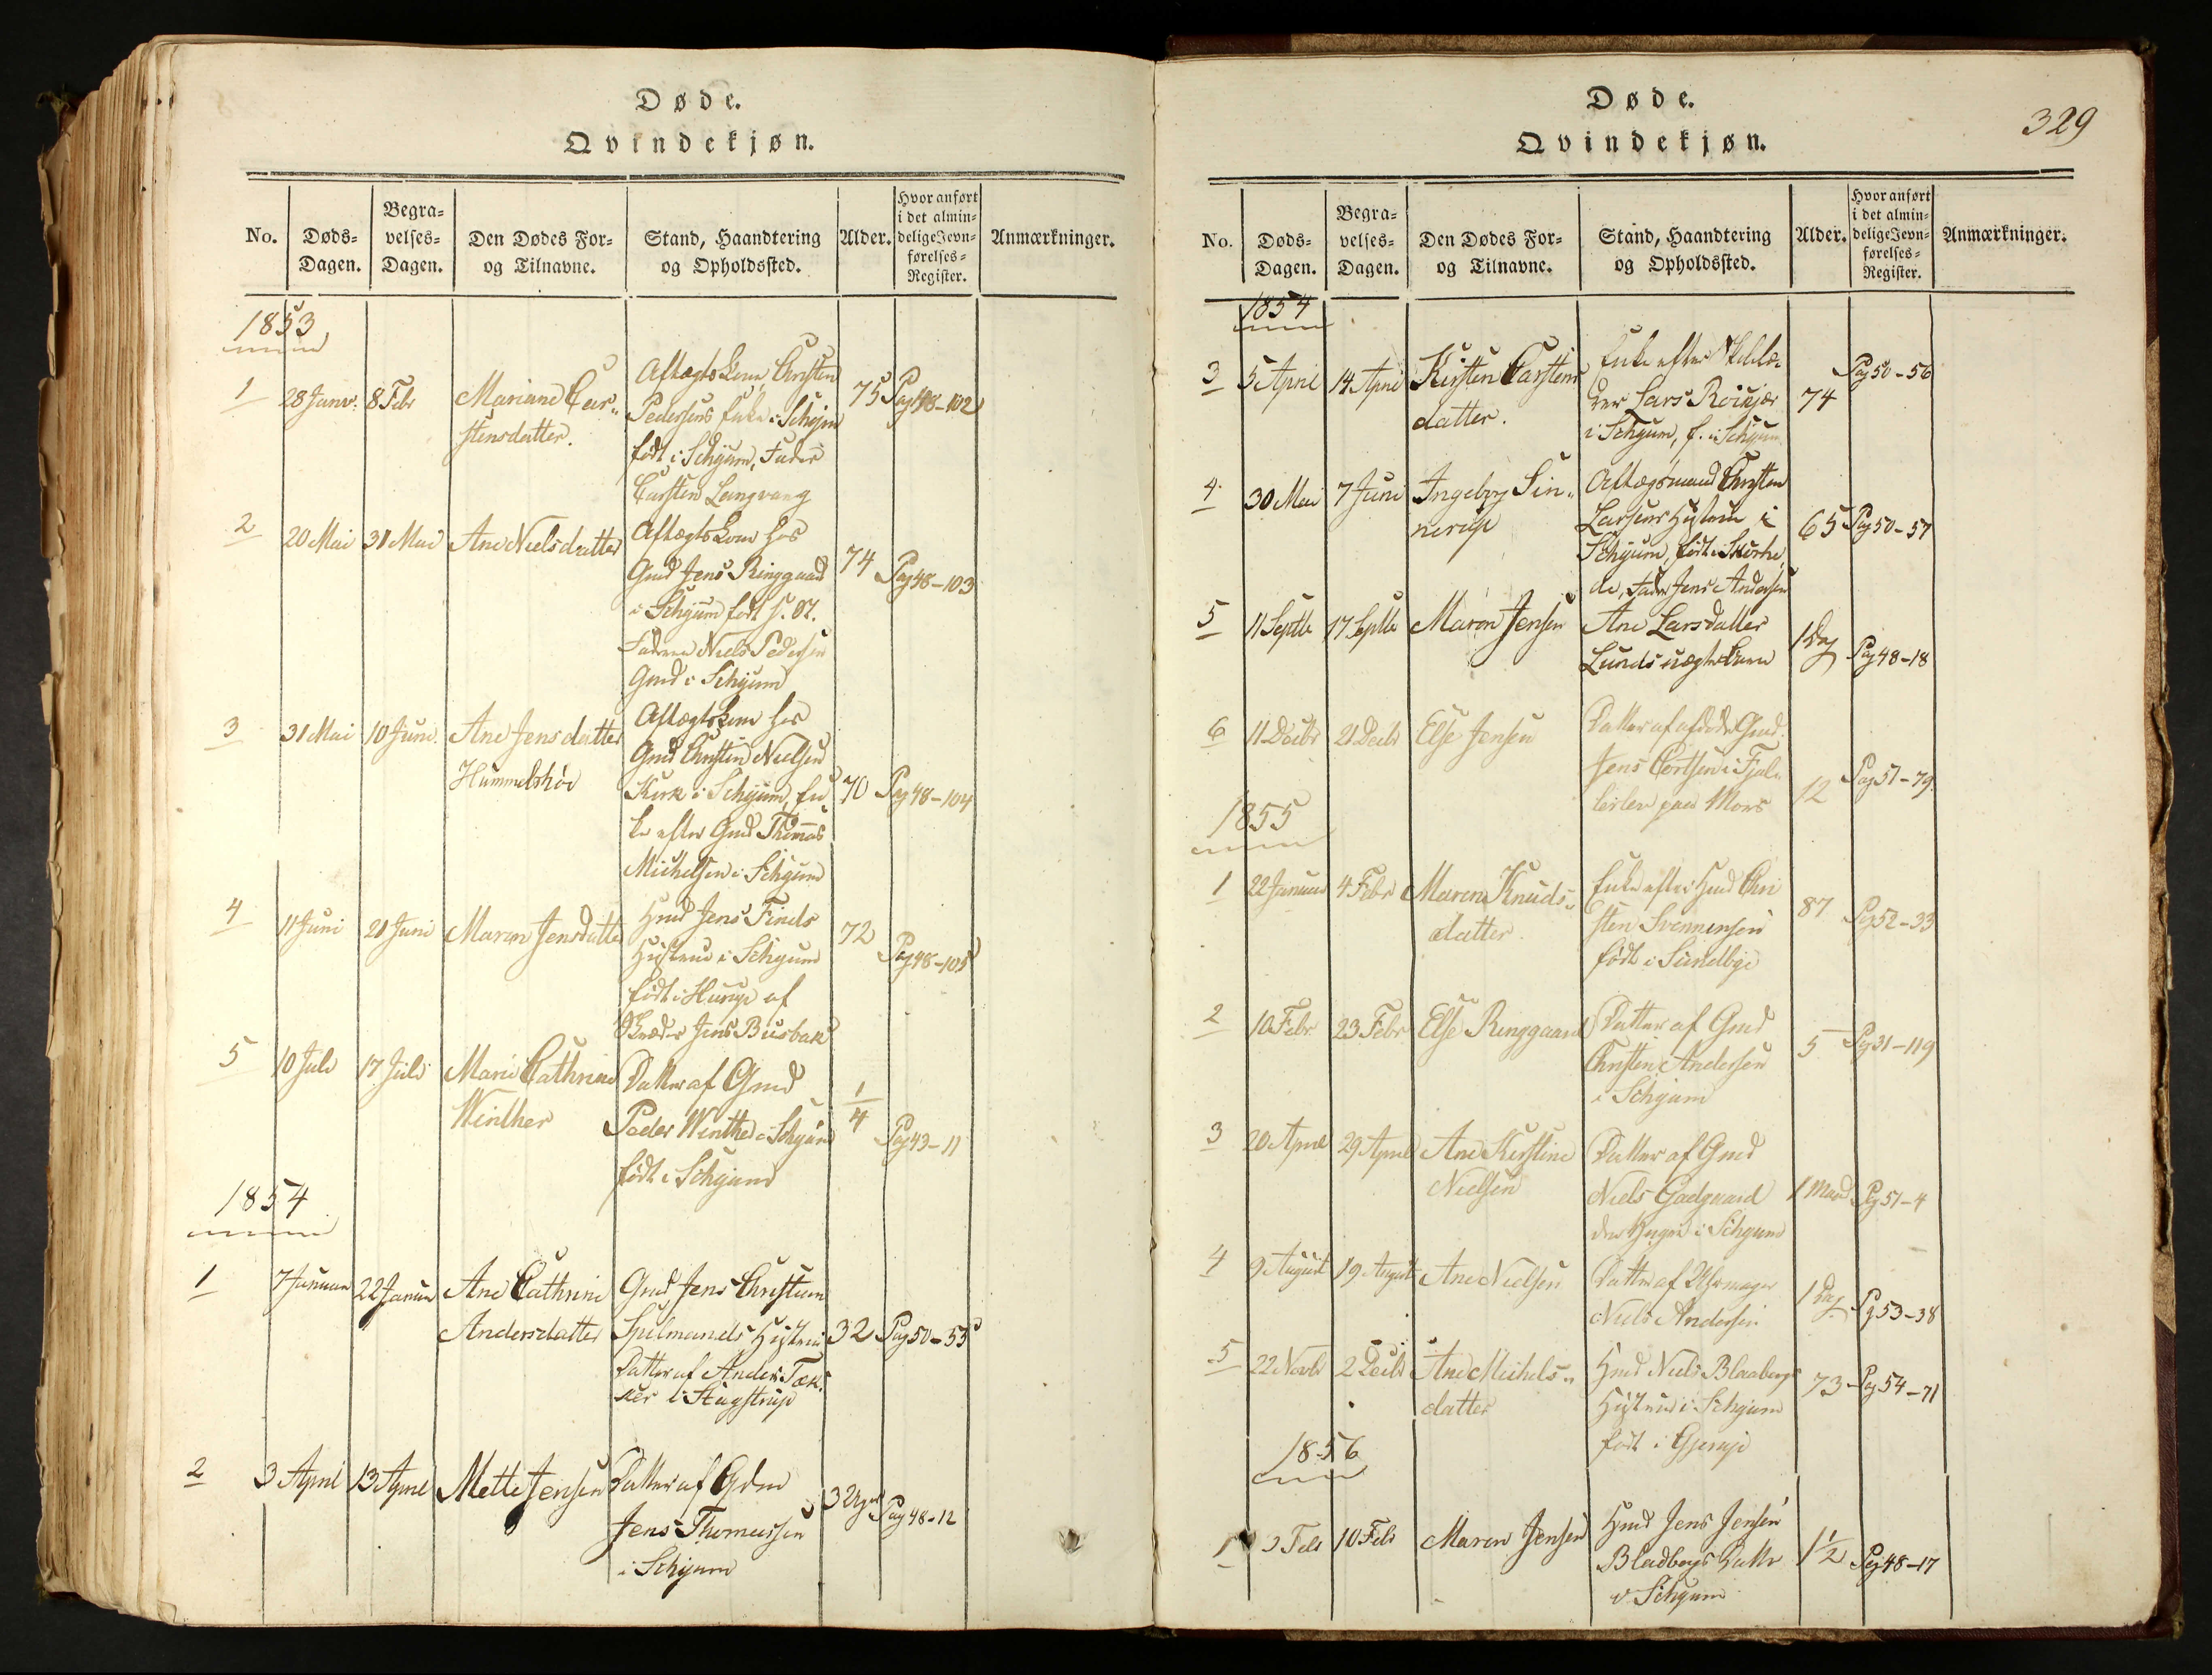 Døde.
Qvindekjøn.
No.
Døds-
Dagen.
Begra-
velses-
Dagen.
Den Dødes For-
og Tilnavne.
Stand, Haandtering
og Opholdssted.
Alder.
Hvor anført
i det almin-
delige Jevn-
førelses-
Register.
Anmærkninger.
1853
1 28 Janv. 8 Febr Mariane Car-
stensdatter.
Aftægtskone Christen
Pedersens Enke i Schjum
født i Schjum, Fader
Carsten Langvang
75 Pag 48-102
2 20 Mai 31 Mai Ane Nielsdatter
Aftægtskone hos
Gmd Jens Ringgaard
i Schjum født s. St.
Faderen Niels Pedersen
Gmd i Schjum
74 Pag 48-103
3 31 Mai 10 Juni Ane Jensdatter
Hummelshøi
Aftægtskone hos
Gmd Christen Nielsen
Kirk i Schjum, En
ke efter Gmd Thomas
Michelsen i Schjum
70 Pag 48-104
4 11 Juni 21 Juni Maren Jensdatter
Hmd Jens Finds
Hustrue i Schjum
født i Hurup af
Jens Busbak
72 Pag 48-105
5 10 Juli 17 Juli Marie Cathrine
Winther
Datter af Gmd
Peder Winther i Schjum
født i Schjum
1/4 Pag 43-11
1854
1 7 Januar 22 Januar Ane Cathrine
Andersdatter
Gmd Jens Christian
Spilmands Hustrue
Datter af Anders Tæk
ker i Stagstrup
32 Pag 50-55
2 3 April 13 April Mette Jensen
Datter af Gdm
Jens Thomassen
i Schjum
3 Uger Pag 48-12
Døde.
Qvindekjøn.
329
No.
Døds-
Dagen.
Begra-
velses-
Dagen.
Den Dødes For-
og Tilnavne.
Stand, Haandtering
og Opholdssted.
Alder.
Hvor anført
i det almin-
delige Jevn-
førelses-
Register.
Anmærkninger.
1854
3 5 April 14 April Kirsten Carstens
datter.
Enke efter Skolelæ
rer Lars Roikjær
i Schjum, f. i Schjum
74 Pag 50-56
4. 30 Mai 7 Juni Ingeborg Sin-
nerup
Aftægtsmand Christen
Larsens Hustrue i
Schjum, født i Skorhe
de, Fader Jens Andersen
65 Pag 50-57
5 11 Septbr 17 Septbr Maren Jensen
Ane Larsdatter
Lunds uægte Barn
1 Dag Pag 48-18
6 11 Decbr 21 Decbr Else Jensen
Datter af afdøde Gmd.
Jens i Fjal-
lerslev paa Mors
12 Pag 51-79
1855
1 22 Januar 4 Febr Maren Knuds-
datter.
Enke efter Hmd Chri
sten Svenningsen
født i Sundbye
87 Pag 52-33
2 10 Febr 23 Febr Else Ringgaard
Datter af Gmd
Christen Andersen
i Schjum
5 Pag 31-119
3 20 April 29 April Ane Kirstine
Nielsen
Datter af Gmd
Niels Gadgaard
den Yngre i Schjum
1 Maaned Pag 51-4
4 9 August 19 August Ane Nielsen
Datter af Uhrmager
Niels Andersen
1 Dag. Pag 53-38
5 22 Novbr 2 Decbr Ane Michels-
datter
Hmd Niels Blaabergs
Hustrue i Schjum
født i Gjerup
73 Pag 54-71
1856
1 3 Febr 10 Febr Maren Jensen
Hmd Jens Jensen
Bladbergs Datter
i Schjum
1 1/2 Pag 48-17